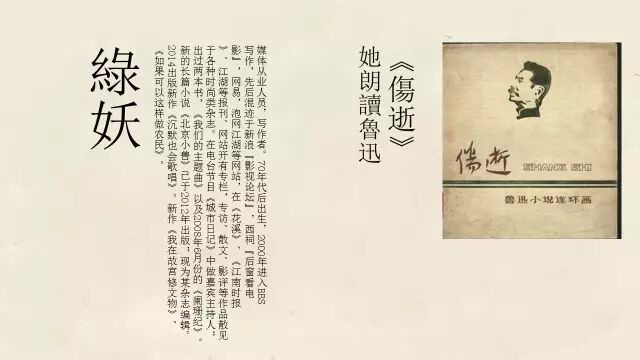 傷逝
SHANG SHI
鲁迅小说连环画
《傷逝》
她朗讀魯迅
媒体从业人员，写作者。70年代后出生，2000年进入BBS
写作，先后混迹于新浪『影视论坛』，西祠『后窗看电
影』，网易，泡网江湖等网站，在《花溪》、《江南时报
》、江湖等报刊、网站开有专栏，专访、散文、影评等作品散见
于各种时尚类杂志。在电台节目《城市日记》中做嘉宾主持人；
出过两本书，《我们的主题曲》以及2008年6月份的《阑珊纪》。
新的长篇小说《北京小兽》已于2012年出版；现为某杂志编辑。
2014出版新作《沉默也会歌唱》。新作《我在故宫修文物》、
《如果可以这样做农民》。
綠妖